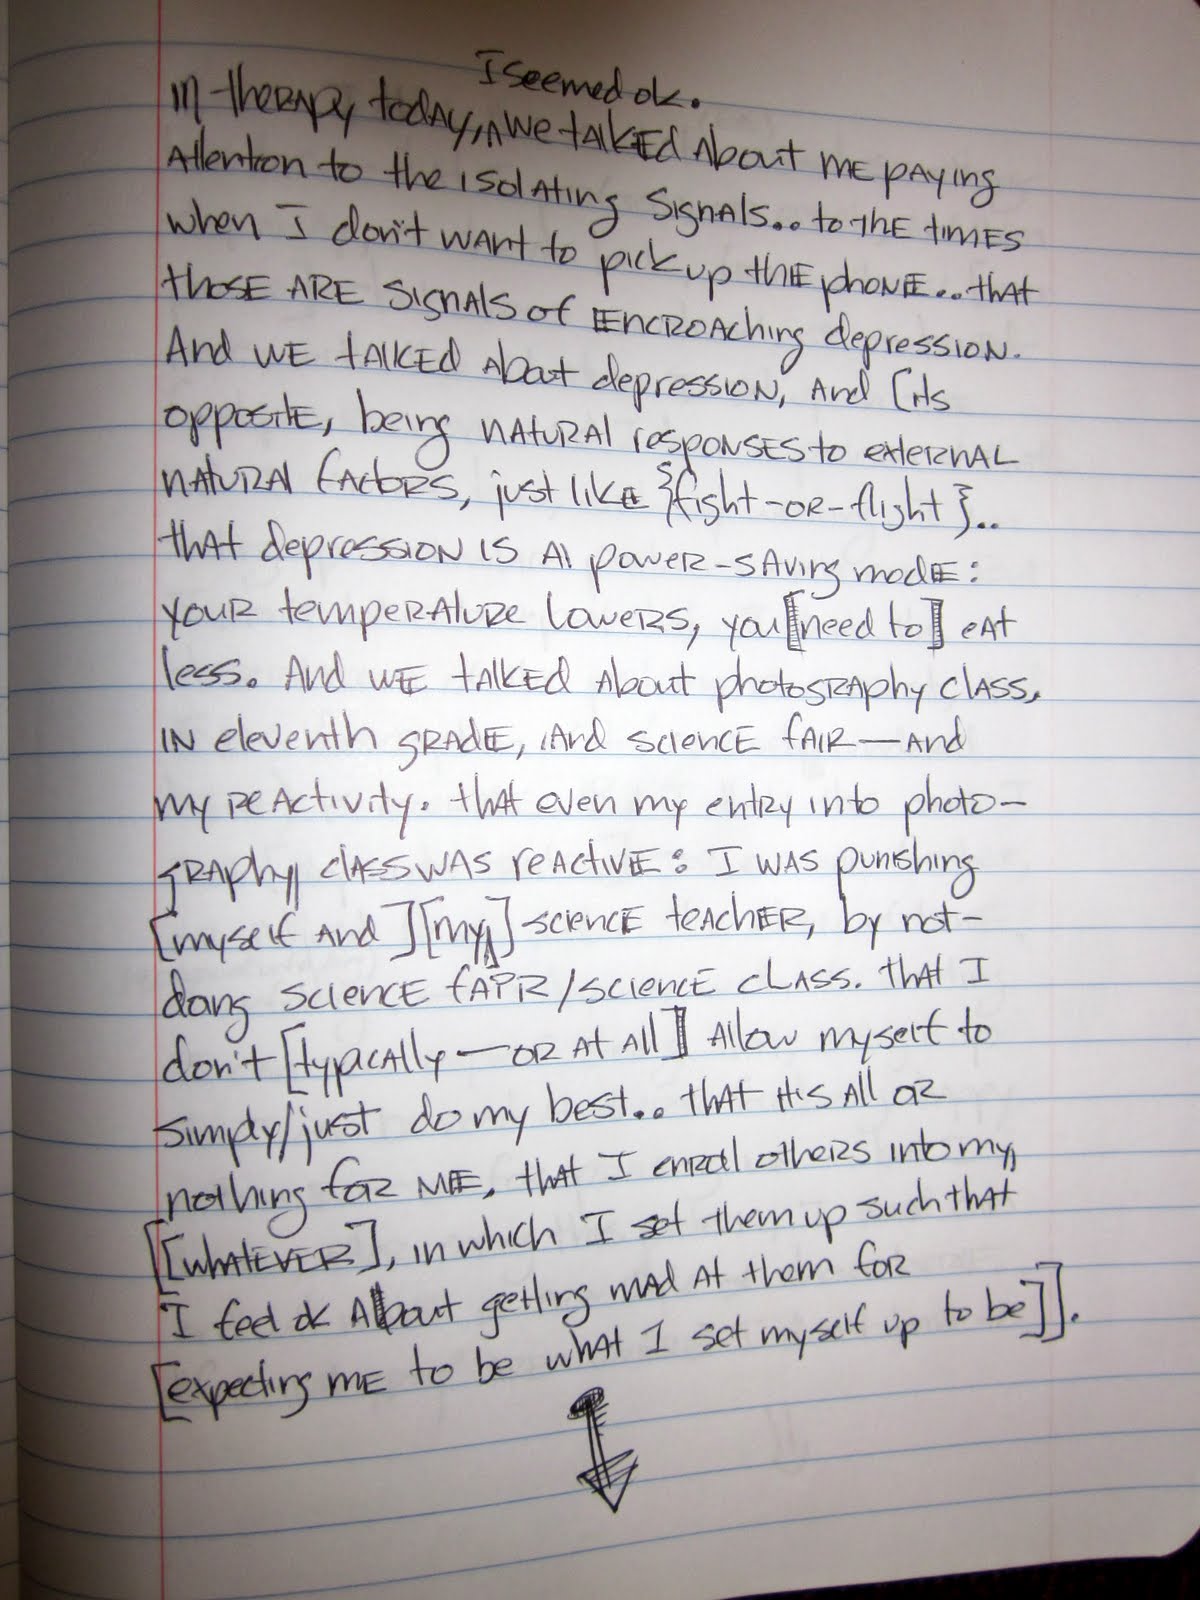 I seemed ok.
In therapy today, we talked about me paying
attention to the isolating signals.. to the times
when I don't want to pick up the phone.. that
those are signals of encroaching depression.
And we talked about depression, and [its
opposite, being natural responses to external
natural factors, just like {fight-or-flight}..
that depression is a power-saving mode:
your temperature lowers, you [need to] eat
less. And we talked about photography class,
in eleventh grade, and science fair—and
my reactivity. That even my entry into photo-
graphy class was reactive: I was punishing
[myself and] [my] science teacher, by not-
doing science fair/science class. That I
don't [typically—or at all] allow myself to
simply/just do my best.. that it's all or
nothing for me, that I enroll others into my
[[whatever], in which I set them up such that
I feel ok about getting mad at them for
[expecting me to be what I set myself up to be]].